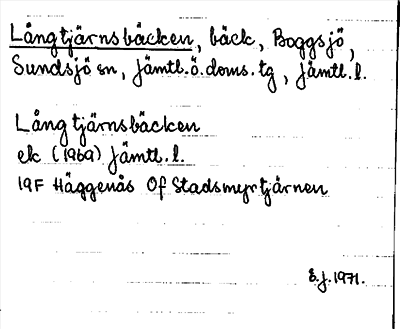 Långtjärnsbäcken, bäck, Boggsjö,
Sundsjö sn, Jämtl.ö.doms.tg, Jämtl.l.
Långtjärnsbäcken
ek (1969) Jämtl.l.
19F Häggenås 0f Stadsmyrtjärnen
E.J.1971.